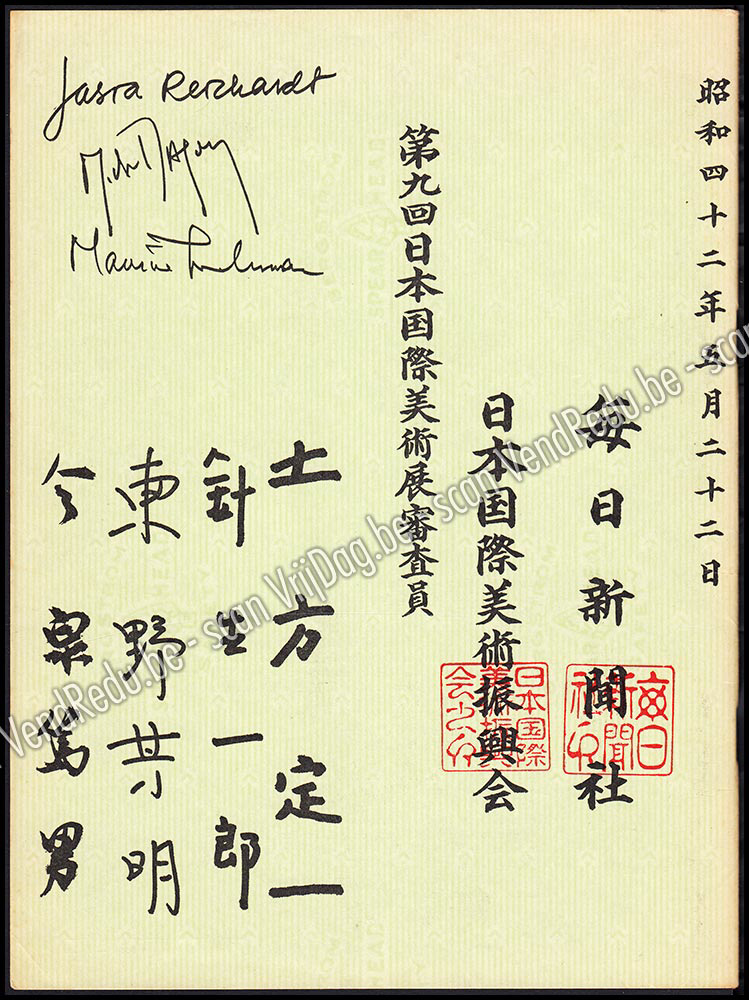 昭和四十二年五月二十二日
毎日新聞社
日本国際美術振興会
第九回日本国際美術展審査員
Jasia Reichardt
土方定一
針生一郎
東野芳明
今泉篤男
VendRedu.be - scan VrijDag.be - scan VendRedu.be - scan